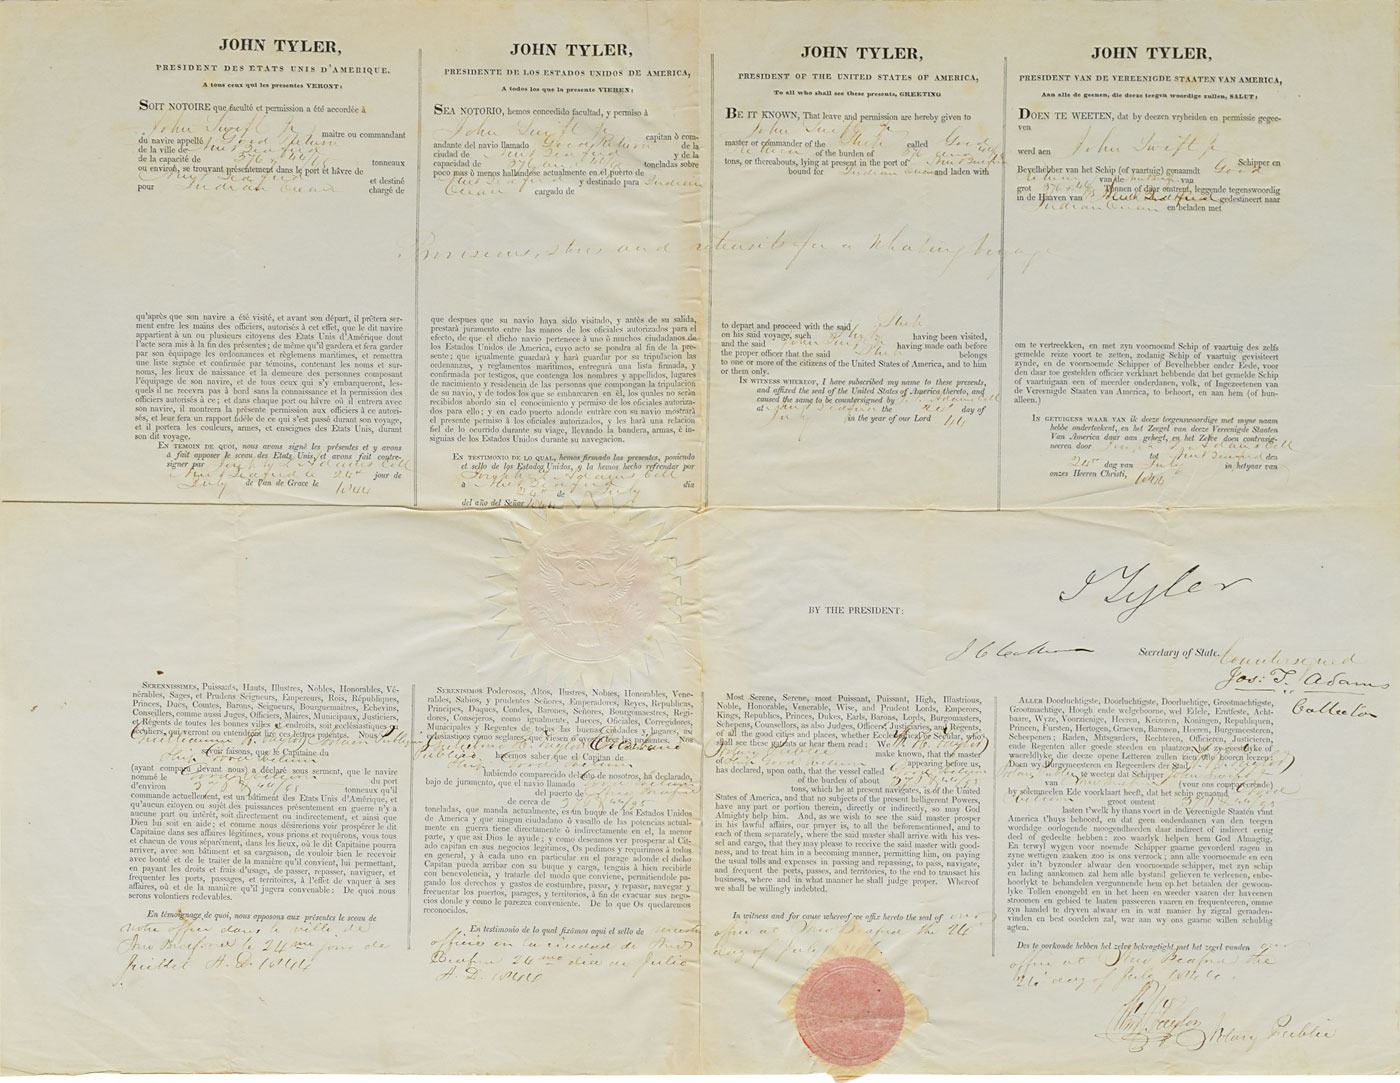 JOHN TYLER,
PRESIDENT DES ETATS UNIS D'AMERIQUE.
A tous ceux qui les presentes VERONT:
SOIT NOTOIRE que faculté et permission a été accordée à
John Swift Jr maitre ou commandant
du navire appellé Good Return
de la ville de New Bedford
de la capacité de 376 44/95 tonneaux
ou environ, se trouvant présentement dans le port et hâvre de
New Bedford et destiné
pour Indian Ocean chargé de
qu'après que son navire a été visité, et avant son départ, il prêtera ser-
ment entre les mains des officiers, autorisés à cet effet, que le dit navire
appartient à un ou plusieurs citoyens des Etats Unis d'Amérique dont
l'acte sera mis à la fin des présentes; de même qu'il gardera et fera garder
par son équipage les ordonnances et règlemens maritimes, et remettra
une liste signée et confirmée par témoins, contenant les noms et sur-
noms, les lieux de naissance et la demeure des personnes composant
l'équipage de son navire, et de tous ceux qui s'y embarqueront, les-
quels il ne recevra pas à bord sans la connaissance et la permission des
officiers autorisés à ce; et dans chaque port ou hâvre où il entrera avec
son navire, il montrera la présente permission aux officiers à ce autori-
sés, et leur fera un rapport fidèle de ce qui s'est passé durant son voyage,
et il portera les couleurs, armes, et enseignes des Etats Unis, durant
son dit voyage.
EN TEMOIN DE QUOI, nous avons signé les présentes et y avons
fait apposer le sceau des Etats Unis, et avons fait contre-
signer par Joseph T. Adams Coll
à New Bedford le 24 jour de
July de l'an de Grace le 1844
JOHN TYLER,
PRESIDENTE DE LOS ESTADOS UNIDOS DE AMERICA,
A todos los que la presente VIEREN:
SEA NOTORIO, hemos concedido facultad, y permiso à
John Swift Jr capitan ò com-
andante del navio llamado Good Return de la
ciudad de New Bedford y de la
capacidad de 376 44/95 toneladas sobre
poco mas ò menos hallandose actualmente en el puerto de
New Bedford y destinado para Indian
Ocean cargado de
que despues que su navio haya sido visitado, y antes de su salida,
prestará juramento entre las manos de los oficiales autorizados para el
efecto, de que el dicho navio pertenece à uno ò muchos ciudadanos de
los Estados Unidos de America, cuyo acto se pondra al fin de la pre-
sente; que igualmente guardará y hará guardar por su tripulacion las
ordenanzas, y reglamentos maritimos, entregará una lista firmada, y
confirmada por testigos, que contenga los nombres y appellidos, lugares
de nacimiento y residencia de las personas que compongan la tripulacion
de su navio, y de todos los que se embarcaren en él, los quales no serán
recibidos abordo sin el conocimiento y permiso de los oficiales autoriza-
dos para ello; y en cada puerto adonde entrare con su navio mostrará
el presente permiso à los oficiales autorizados, y les hará una relacion
fiel de lo ocurrido durante su viage, llevando la bandera, armas, é in-
signias de los Estados Unidos durante su navegacion.
EN TESTIMONIO DE LO QUAL, hemos firmado las presentes, poniendo
el sello de los Estados Unidos, y la hemos hecho refrendar por
Joseph T. Adams Coll
à New Bedford dia
24 de July
del año del Señor 1844
JOHN TYLER,
PRESIDENT OF THE UNITED STATES OF AMERICA,
To all who shall see these presents, GREETING
BE IT KNOWN, That leave and permission are hereby given to
John Swift Jr
master or commander of the Ship called Good
Return of the burden of 376 44/95
tons, or thereabouts, lying at present in the port of New Bedford
bound for Indian Ocean and laden with
Provisions, stores and utensils for a Whaling Voyage
to depart and proceed with the said Ship
on his said voyage, such Ship having been visited,
and the said John Swift Jr having made oath before
the proper officer that the said Ship belongs
to one or more of the citizens of the United States of America, and to him
or them only.
IN WITNESS WHEREOF, I have subscribed my name to these presents,
and affixed the seal of the United States of America thereto, and
caused the same to be countersigned by Jos. T. Adams Coll
at New Bedford the 24th day of
July in the year of our Lord 1844
JOHN TYLER,
PRESIDENT VAN DE VEREENIGDE STAATEN VAN AMERICA,
Aan alle de geenen, die deeze teegen woordige zullen, SALUT:
DOEN TE WEETEN, dat by deezen vryheiden en permissie gegee-
ven
werd aen John Swift Jr
Schipper en
Bevelhebber van het Schip (of vaartuig) genaamdt Good
Return van de van
grot 376 44/95 Tonnen of daar omtrent, leggende tegenswoordig
in de Haaven van New Bedford gedestineert naar
Indian Ocean en beladen met
om te vertreekken, en met zyn voornoemd Schip of vaartuig des zelfs
gemelde reize voort te zetten, zodanig Schip of vaartuig gevisiteert
zynde, en de voornoemde Schipper of Bevelhebber onder Eede, voor
den daar toe gestelden officier verklaart hebbende dat het gemelde Schip
of vaartuigaan een of meerder onderdanen, volk, of Ingezeetenen van
de Vereenigde Staaten van America, to behoort, en aan hem (of hun-
alleen.)
IN GETUIGENS WAAR VAN ik deeze teegenswoordige met myne naam
hebbe onderteekent, en het Zeegel van deeze Verenigde Staaten
Van America daar aan gehegt, en het Zelve doen contrasig-
neeren door Jos. T. Adams Coll
tot New Bedford den
24th dag van July in hetjaar van
onzes Heeren Christi, 1844
J Tyler
BY THE PRESIDENT:
J C Calhoun Secretary of State.
Countersigned
Jos: T. Adams
Collector
SERENISSIMES, Puissants, Hauts, Illustres, Nobles, Honorables, Vé-
nérables, Sages, et Prudens Seigneurs, Empereurs, Rois, Républiques,
Princes, Ducs, Comtes, Barons, Seigneurs, Bourguemaitres, Echevins,
Conseillers, comme aussi Juges, Officiers, Maires, Municipaux, Justiciers,
et Régents de toutes les bonnes villes et endroits, soit ecclésiastiques ou
séculiers, qui verront ou entendront lire ces lettres patentes. Nous
savoir faisons, que le Capitaine du
Ship Good Return
(ayant comparu devant nous) a déclaré sous serment, que le navire
nommé le Good Return du port
d'environ 376 44/95 tonneaux qu'il
commande actuellement, est un bâtiment des Etats Unis d'Amérique, et
qu'aucun citoyen ou sujet des puissances présentement en guerre n'y a
aucune part ou intérêt, soit directement ou indirectement, et ainsi que
Dieu lui soit en aide; et comme nous désirerions voir prospérer le dit
Capitaine dans ses affaires légitimes, vous prions et requérons, vous tous
et chacun de vous séparément, dans les lieux, où le dit Capitaine pourra
arriver, avec son bâtiment et sa cargaison, de vouloir bien le recevoir
avec bonté et de le traiter de la manière qu'il convient, lui permettant,
en payant les droits et frais d'usage, de passer, repasser, naviguer, et
frequenter les ports, passages, et territoires, à l'effet de vaquer à ses
affaires, où et de la manière qu'il jugera convenable: De quoi nous
serons volontiers redevables.
En témoignage de quoi, nous apposons aux présentes le sceau de
notre office dans la ville de
New Bedford le 24me jour de
Juillet A. D. 1844
SERENISIMOS Poderosos, Altos, Ilustres, Nobles, Honorables, Vene-
rables, Sabios, y prudentes Señores, Emperadores, Reyes, Republicas,
Principes, Duques, Condes, Barones, Señores, Bourgomaestres, Regi-
dores, Consejeros, como igualmente, Jueces, Oficiales, Corregidores,
Municipales y Regentes de todas las buenas ciudades y lugares, asi
eclesiasticos como seglares, que Viesen ó oyesen leer las presentes. Nos
hacemos saber, que el Capitan de
Ship Good Return
habiendo comparecido delante de nosotros, ha declarado,
bajo de juramento, que el navio llamado Good Return
del puerto de New Bedford
de cerca de 376 44/95
toneladas, que manda actualmente, es un buque de los Estados Unidos
de America y que ningun ciudadano ó vasallo de las potencias actual-
mente en guerra tiene directamente ó indirectamente en el, la menor
parte, y que asi Dios le ayude; y como deseamos ver prosperar al Ci-
tado capitan en sus negocios legitimos, Os pedimos y requirimos à todos
en general, y à cada uno en particular en el parage adonde el dicho
Capitan pueda arribar con su buque y carga, tengais à bien recibirle
con benevolencia, y tratarle del modo que conviene, permitiendole pa-
gando los derechos y gastos de costumbre, pasar, y repasar, navegar y
frecuentar los puertos, parages, y territorios, á fin de evacuar sus nego-
cios donde y como le parezca conveniente. De lo que Os quedaremos
reconocidos.
En testimonio de lo qual fixámos aqui el sello de nuestro
officio en la ciudad de New
Bedford 24mo dia de Julio
A. D. 1844
Most Serene, Serene, most Puissant, Puissant, High, Illustrious,
Noble, Honorable, Venerable, Wise, and Prudent Lords, Emperors,
Kings, Republics, Princes, Dukes, Earls, Barons, Lords, Burgomasters,
Schepens, Counsellors, as also Judges, Officers, Justiciaries, and Regents,
of all the good cities and places, whether Ecclesiastical or Secular, who
shall see these patents or hear them read: We Wm H. Taylor
Notary Public make known, that the master
of Ship Good Return appearing before us,
has declared, upon oath, that the vessel called Good Return
of the burden of about 376 44/95
tons, which he at present navigates, is of the United
States of America, and that no subjects of the present belligerent Powers,
have any part or portion therein, directly or indirectly, so may God
Almighty help him. And, as we wish to see the said master prosper
in his lawful affairs, our prayer is, to all the beforementioned, and to
each of them separately, where the said master shall arrive with his ves-
sel and cargo, that they may please to receive the said master with good-
ness, and to treat him in a becoming manner, permitting him, on paying
the usual tolls and expenses in passing and repassing, to pass, navigate,
and frequent the ports, passes, and territories, to the end to transact his
business, where and in what manner he shall judge proper. Whereof
we shall be willingly indebted.
In witness and for cause whereof we affix hereto the seal of our
office at New Bedford the 24th
day of July
ALLER Doorluchtigste, Doorluchtigste, Doorluchtige, Grootmachtigste,
Grootmachtige, Hoogh ende welgeboorne, wel Edele, Erntfeste, Acht-
baare, Wyze, Voorzienige, Heeren, Keizeren, Koningen, Republiquen,
Princen, Fursten, Hertogen, Graeven, Baronen, Heeren, Burgemeesteren,
Schepenen; Raden, Mitsgerders, Rechteren, Officieren, Justicieren,
ende Regenten aller goede steeden en plaatzen, het zy geestelyke of
waereldlyke, die deeze opene Letteren zullen zien ofte hooren leezen:
Doen wy Burgemeesteren en Regeerders der Stad
Notary Public te weeten dat Schipper John Swift
van (voor ons compareerende)
by solemneelen Ede voorklaart heeft, dat het schip genaamd Good
Return groot omtent 376 44/95
lasten t'welk hy thans voert in de Verenigde Staaten van
America t'huys behoord, en dat geen onderdaanen van den teegen
wordige oorlogende moogendheeden daar indirect of indirect eenig
deel of gedeelte hebben: zoo waarlyk helpen hem God Almagtig.
En terwyl wy voor noemde Schipper gaarne gevorderd zagen in
zyne wettigen zaaken zoo is ons verzoek; an alle voornoemde en een
yder in't byzonder alwaar den voornoemde schipper, met zyn schip
en lading aankomen zal hem alle bystand gelieven te verleenen, enbe-
hoorlykt te behandelen vergunnende hem op het betaalen der gewoon-
lyke Tollen enongeld en in het heen en weeder vaaren der haveenen
stroomen en gebied te laaten passeeren vaaren en frequenteeren, omme
zyn handel te dryven alwaar en in wat manier hy zigzal geraadenvinden en best oordelen zal, wat aan wy ons gaarne willen schuldig
agten.
Des te oorkonde hebben het zelve bekragtight met het zegel vanden our
office at New Bedford the
24th day of July 1844.
Wm H. Taylor
Notary Public